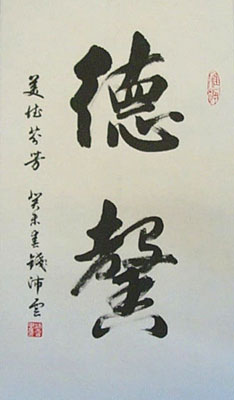 德馨
美德芬芳 癸未春 錢沛雲